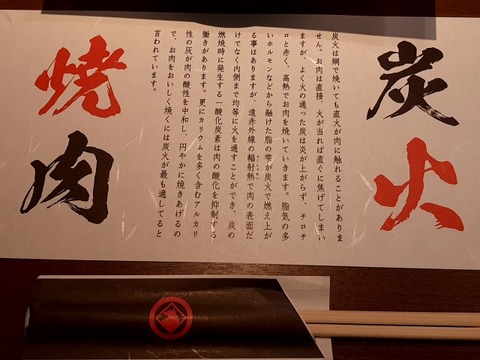 炭火
炭火は網で焼いても直火が肉に触れることがありま
せん。お肉は直接、火が当れば直ぐに焦げてしまい
ますが、よく火の通った炭は炎が上がらず、チロチ
ロと赤く、高熱でお肉を焼いていきます。脂気の多
いホルモンなどから融けた脂の雫が炭火で燃え上が
る事はありますが、遠赤外線の輻射熱で肉の表面だ
けでなく内側まで均等に火を通すことができ、炭の
燃焼時に発生する一酸化炭素は肉の酸化を抑制する
働きがあります。更にカリウムを多く含むアルカリ
性の灰が肉の酸性を中和し、円やかに焼きあげるの
で、お肉をおいしく焼くには炭火が最も適してると
言われています。
焼肉